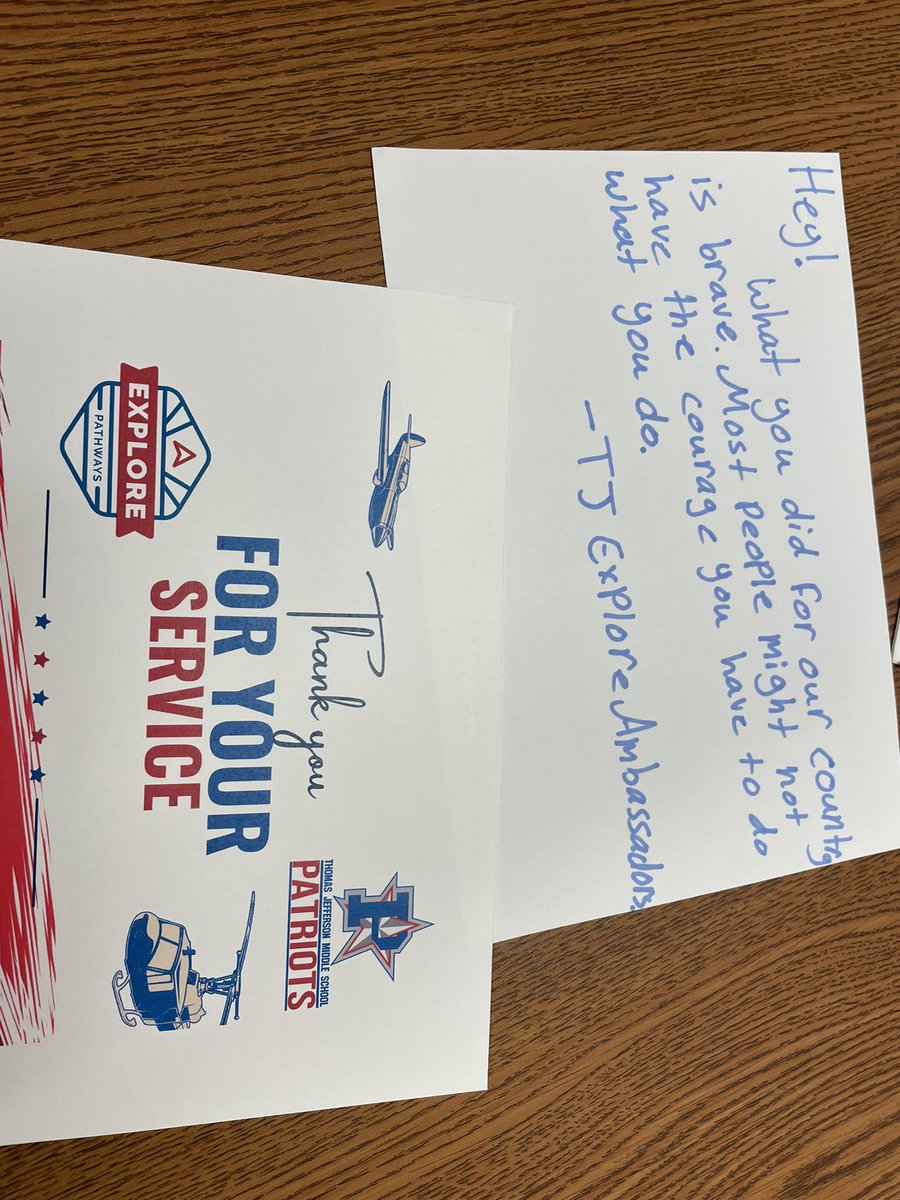 Hey!
What you did for our country
is brave. Most people might not
have the courage you have to do
what you do.
-TJ Explore Ambassadors.
EXPLORE
PATHWAYS
Thank you
FOR YOUR
SERVICE
P
THOMAS JEFFERSON MIDDLE SCHOOL
PATRIOTS